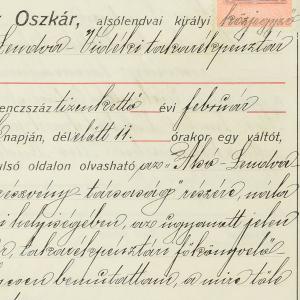 Oszkár, alsólendvai királyi közjegyző
Lendva-Vidéki takarékpénztár
enczszáz tizenkettő évi február
napján, délelőtt 11. órakor egy váltót,
ulsó oldalon olvasható az "Alsó-Lendva
részvény társaság részére, nála
i helyiségében, az ugyanott jelen
takarékpénztári főkönyvelő
bemutattam, a mire tőle